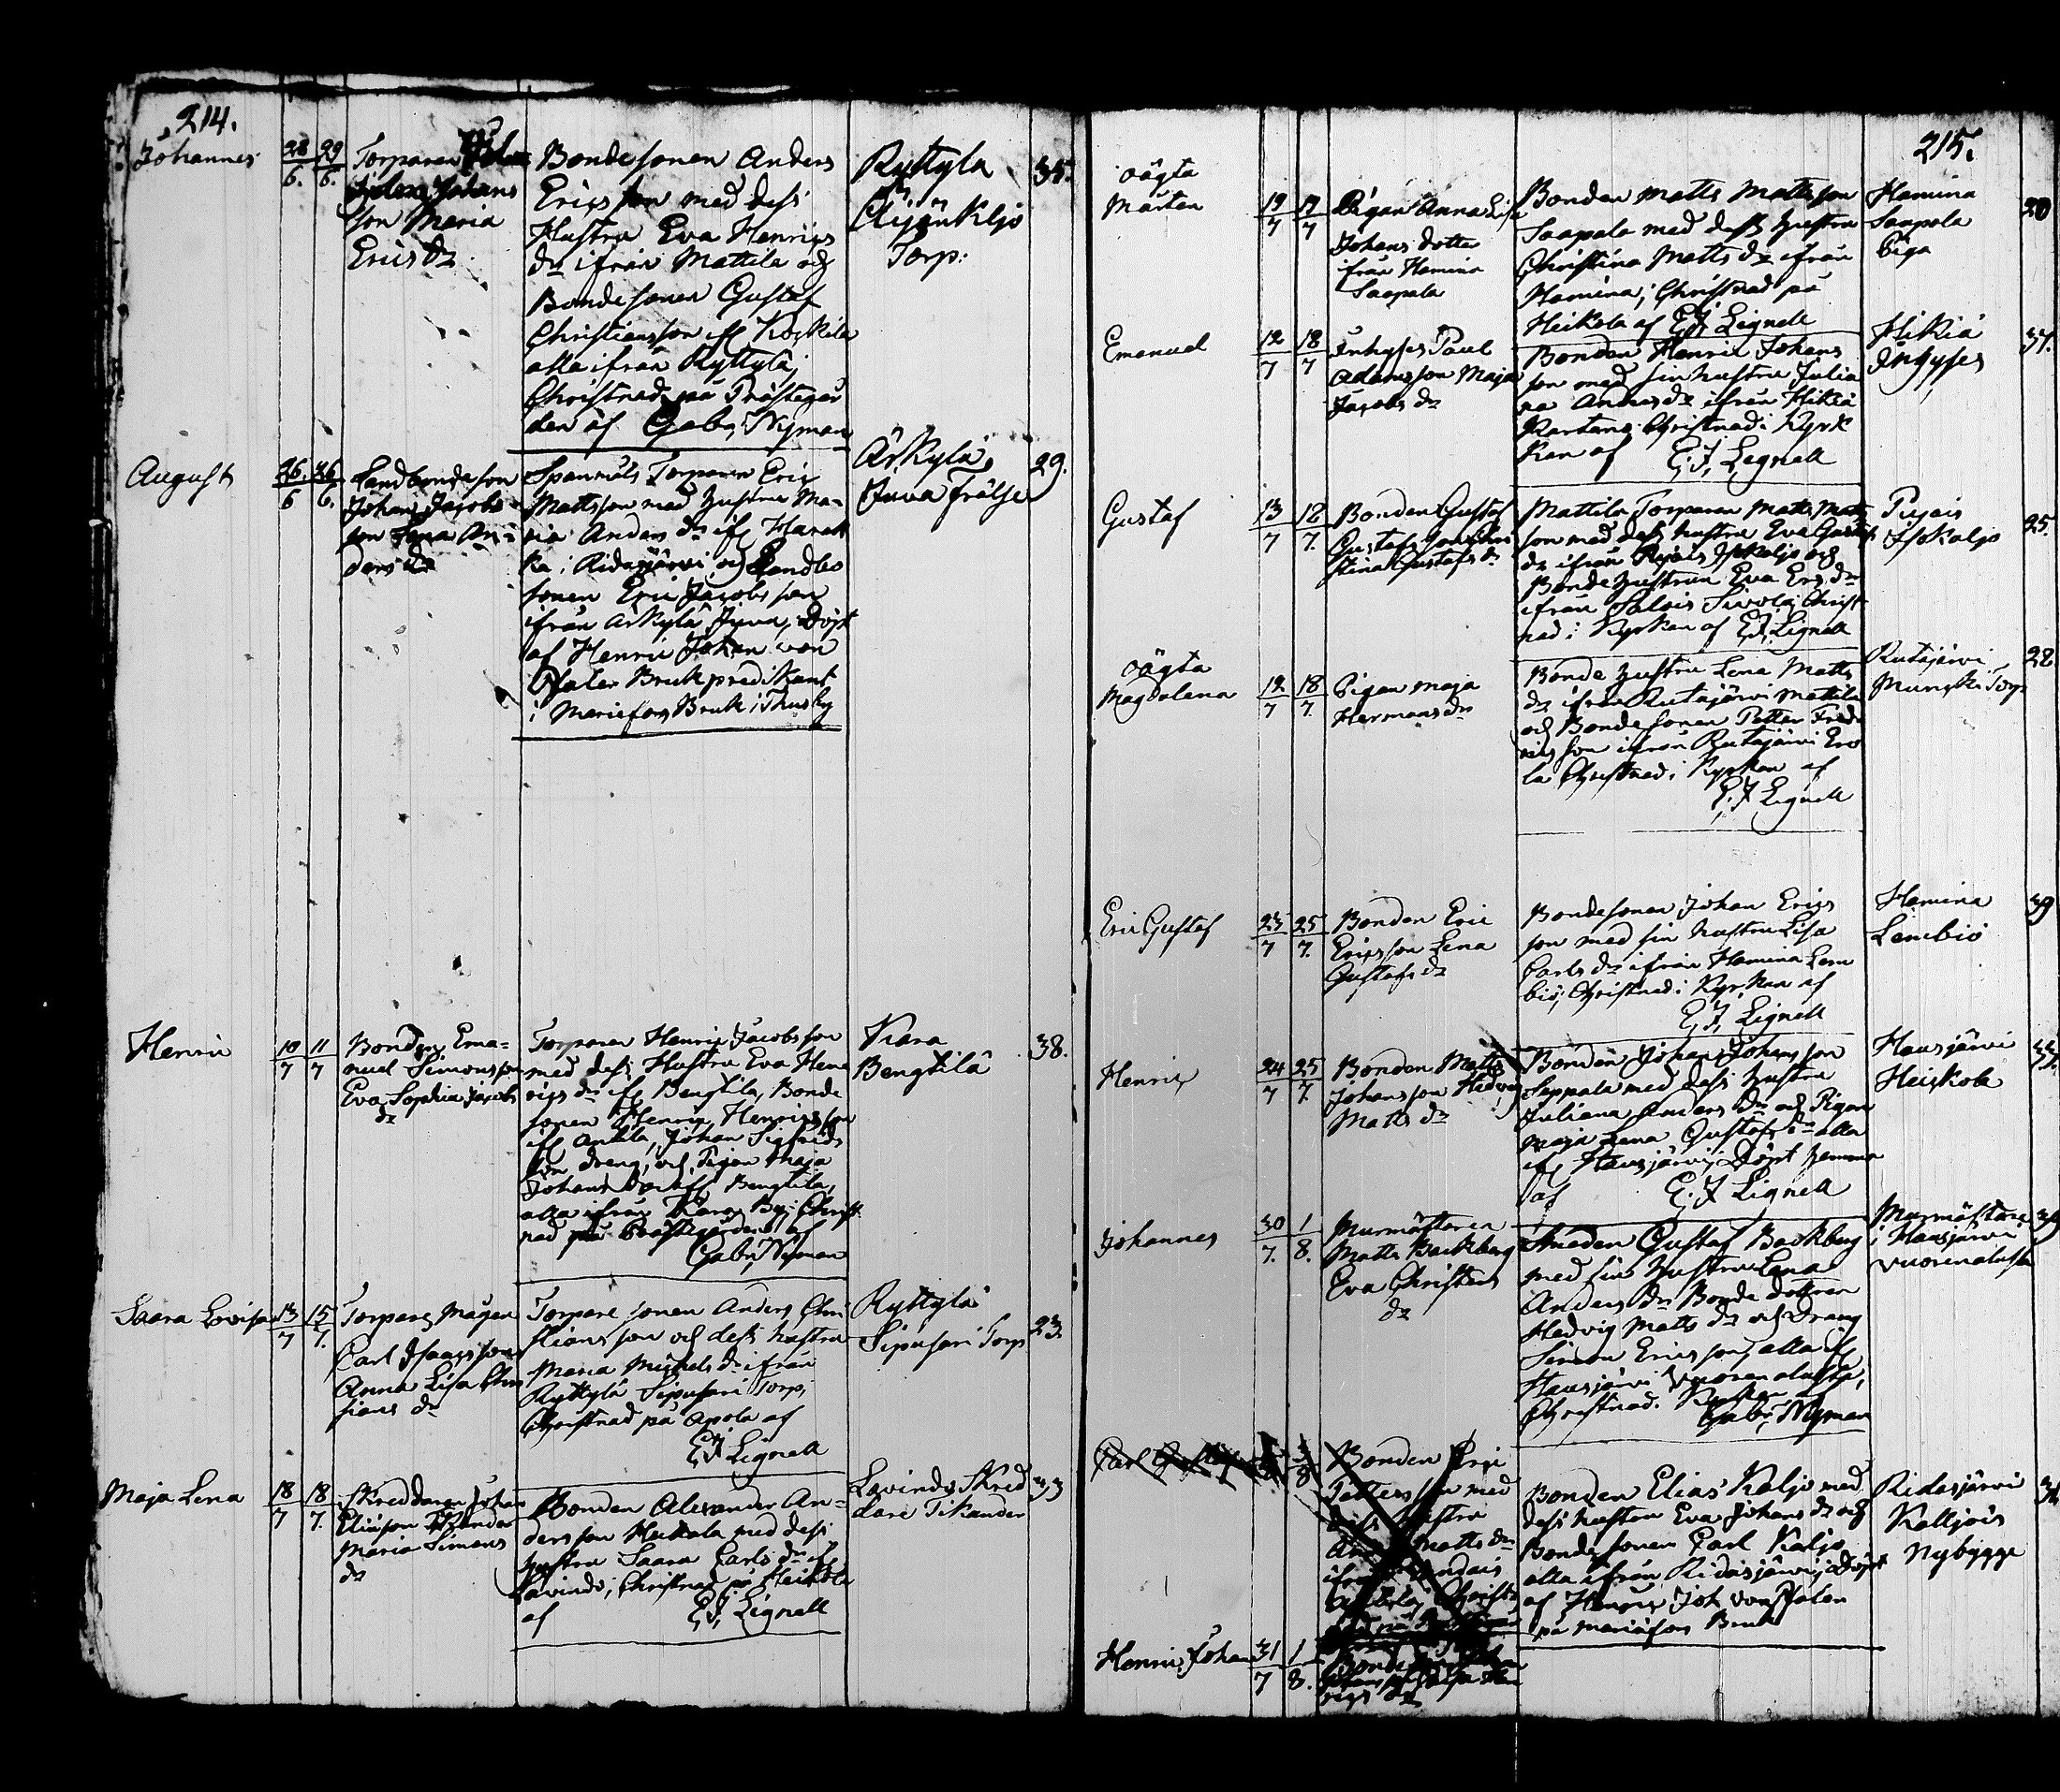 214.
Johannes 28/6. 29/6. Torparen
Johans
son Maria
Erics dr
Bondesonen Anders
Ericsson med dess
Hustru Eva Henrics
dr ifrån Mattila och
Bondesonen Gustaf
Christiansson ifr Koskila
alla ifrån Ryttylä,
Christnad på Prästegår
den af Gabr. Nyman
Ryttylä
Torp:
35.
August 26/6 26/6. Landbondeson
Johan Jacobs
son Lena An-
ders dr
Spanmåls Torparen Eric
Mattsson med hustru Ma-
ria Anders dr ifr
ka i Ridasjärvi och Landbo
sonen Eric Jacobsson
ifrån Arkylä Juva, Döpt
af Henric Johan von
Pfaler Bruk predikant
i Mariefors Bruk i Thusby
Arkylä
Juva frälse
29.
Henric 10/7 11/7 Bonden Ema-
nuel Simonsson
Eva Sophia Jacobs
dr
Torparen Henric Jacobsson
med dess Hustru Eva Hen
rigs dr ifr Bengtila, Bonde
sonen Henric Henricsson
ifr Anttila, Johan Sigfrids
son dreng, och Pigan Maja
Johans dr ifr Bengtila,
alla ifrån Kara By; Christ
nad på Prästegården af
Gabr. Nyman
Kara
Bengtilä
38.
Saara Lovisa 13/7 15/7. Torpare Mågen
Carl Isaacsson
Anna Lisa Chri
stians dr
Torpare sonen Anders Chri
stiansson och dess hustru
Maria Michels dr ifrån
Ryttylä Sipusari Torp;
Christnad på Apola af
E. J. Lignell
Ryttylä
Sipusari Torp
23.
Maja Lena 18/7 18/7. Skreddaren Johan
Eliæson Tikander
Maria Simons
dr
Bonden Alexander An-
dersson Heikola med dess
hustru Saara Carls dr ifr
Lavindo; Christnad på Heikola
af E. J. Lignell
Lavindo Skred
dare Tikander
33
215.
oägta
Mårten 17/7 Pigan Anna Lisa
Johans dotter
ifrån Hamina
Saapala
Bonden Matts Mattsson
Saapala med dess hustru
Christina Matts dr ifrån
Hamina; Christnad på
Heikola af E. J. Lignell
Hamina
Saapola
Piga
20
Emanuel 12/7 18/7 Inhyses Paul
Adamsson Maja
Jacobs dr
Bonden Henric Johans
son med sin hustru Julia
na Anders dr ifrån Hikiä
Kartano Christnad i Kyrk
kan af E. J. Lignell
Hikiä
Inhyses
37.
Gustaf 13/7 18/7. Bonden Gustaf
Gustafsson Chri
stina Gustafs dr
Mattila Torparen Matts Matts
son med dess hustru Eva Gustafs
dr ifrån Pujois Iskaljo och
Bonde hustrun Eva Erics dr
ifrån Salois Sivola; Christ
nad i Kyrkan af E. J. Lignell
Pujois
Iskaljo
25.
oägta
Magdalena 12/7 18/7. Pigan Maja
Hermans dr
Bonde hustru Lena Matts
dr ifrån Rutajärvi Mattila
och Bonde sonen Petter Fred
rics son ifrån Rutajärvi Ero
la Christnad i Kyrkan af
E. J. Lignell
Rutajärvi
Munski Torp
28
Eric Gustaf 23/7 25/7. Bonden Eric
Ericsson Lena
Gustafs dr
Bondesonen Johan Erics
son med sin hustru Lisa
Carls dr ifrån Hamina Lem
biö; Christnad i Kyrkan af
E. J. Lignell
Hamina
Lembiö
39
Henric 24/7 25/7. Bonden Matts
Johansson Hedvig
Matts dr
Bonden Johan Johansson
Seppala med dess hustru
Juliana Anders dr och Pigan
Maja Lena Gustafs dr alla
ifr Hausjärvi; Döpt hemma
af E. J. Lignell
Hausjärvi
Heiskola
33.
Johannes 30/7. 1/8. Murmästaren
Matts Backberg
Eva Christers
dr
Smeden Gustaf Backberg
med sin hustru Lena
Anders dr Bonde dottren
Hedvig Matts dr och Dräng
Simon Ericsson, alla ifr
Hausjärvi Vuorenalusta,
Christnad i Kyrkan af
Gabr. Nyman
Murmästare
i Hausjärvi
Vuorenalusta
39
Carl Gustaf
Bonden Eric
Pettersson med
dess hustru
Matts dr
Christ
Henric Johan 31/7 1/8.
Bonden Elias Kaljo med
dess hustru Eva Johans dr och
Bonde sonen Carl Kaljo
alla ifrån Ridasjärvi; Döpt
af Henric Joh. von Pfaler
på Mariæfors Bruk
Ridasjärvi
Kalljois
Nybygge